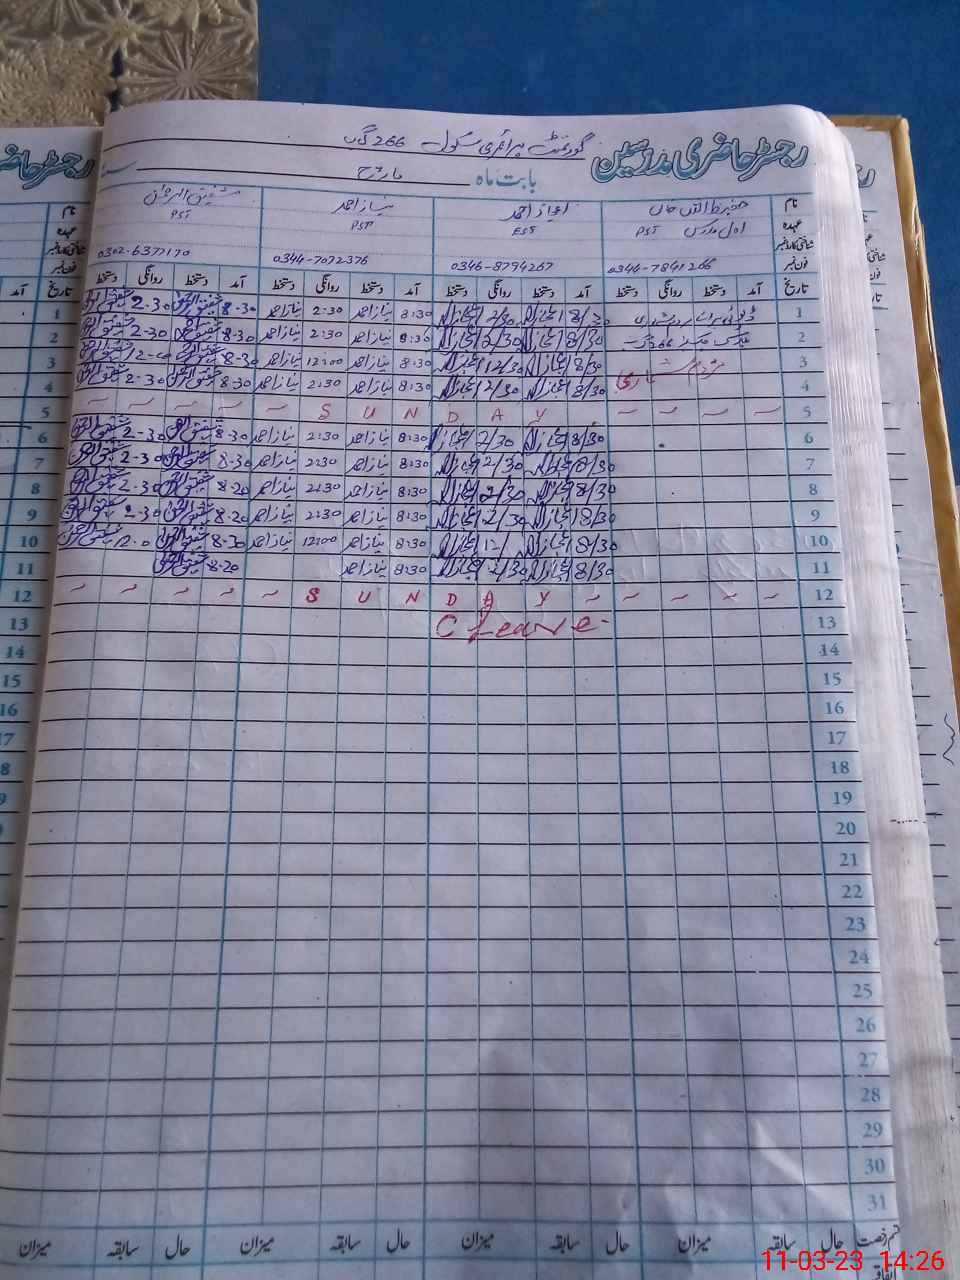 رجسٹر حاضری مدرسین
گورنمنٹ پرائمری سکول 266 گ ب
بابت ماہ مارچ
نام حفیظ اللہ خاں اعجاز احمد نیاز احمد شفیق الرحمٰن
عہدہ اول مدرس PST EST PST PST
شناختی کارڈ نمبر
فون نمبر 0344-7841266 0346-8794267 0344-7072376 0302-6377170
تاریخ آمد دستخط روانگی دستخط آمد دستخط روانگی دستخط آمد دستخط روانگی دستخط آمد دستخط روانگی دستخط
1 ڈیوٹی برائے مردم شماری 8/30 اعجاز 2/30 اعجاز 8:30 نیاز احمد 2:30 نیاز احمد 8-30 شفیق الرحمٰن 2-30 شفیق الرحمٰن
2 8/30 اعجاز 2/30 اعجاز 8:30 نیاز احمد 2:30 نیاز احمد 8-30 شفیق الرحمٰن 2-30 شفیق الرحمٰن
3 مردم شماری 8/30 اعجاز 12/30 اعجاز 8:30 نیاز احمد 12:00 نیاز احمد 8-30 شفیق الرحمٰن 12-0 شفیق الرحمٰن
4 8/30 اعجاز 2/30 اعجاز 8:30 نیاز احمد 2:30 نیاز احمد 8-30 شفیق الرحمٰن 2-30 شفیق الرحمٰن
5 ~ ~ ~ ~ ~ S U N D A Y ~ ~ ~ ~
6 8/30 اعجاز 2/30 اعجاز 8:30 نیاز احمد 2:30 نیاز احمد 8-30 شفیق الرحمٰن 2-30 شفیق الرحمٰن
7 8/30 اعجاز 2/30 اعجاز 8:30 نیاز احمد 2:30 نیاز احمد 8-30 شفیق الرحمٰن 2-30 شفیق الرحمٰن
8 8/30 اعجاز 2/30 اعجاز 8:30 نیاز احمد 2:30 نیاز احمد 8-20 شفیق الرحمٰن 2-30 شفیق الرحمٰن
9 8/30 اعجاز 2/30 اعجاز 8:30 نیاز احمد 2:30 نیاز احمد 8-20 شفیق الرحمٰن 2-30 شفیق الرحمٰن
10 8/30 اعجاز 12/ اعجاز 8:30 نیاز احمد 12:00 نیاز احمد 8-30 شفیق الرحمٰن 12-0 شفیق الرحمٰن
11 8/30 اعجاز 2/30 اعجاز 8:30 نیاز احمد 8-20 شفیق الرحمٰن
12 ~ ~ ~ ~ ~ S U N D A Y ~ ~ ~ ~ ~
13 C Leave
14
15
16
17
18
19
20
21
22
23
24
25
26
27
28
29
30
31
رخصت حال سابقہ میزان حال سابقہ میزان حال سابقہ میزان حال سابقہ میزان
11-03-23 14:26